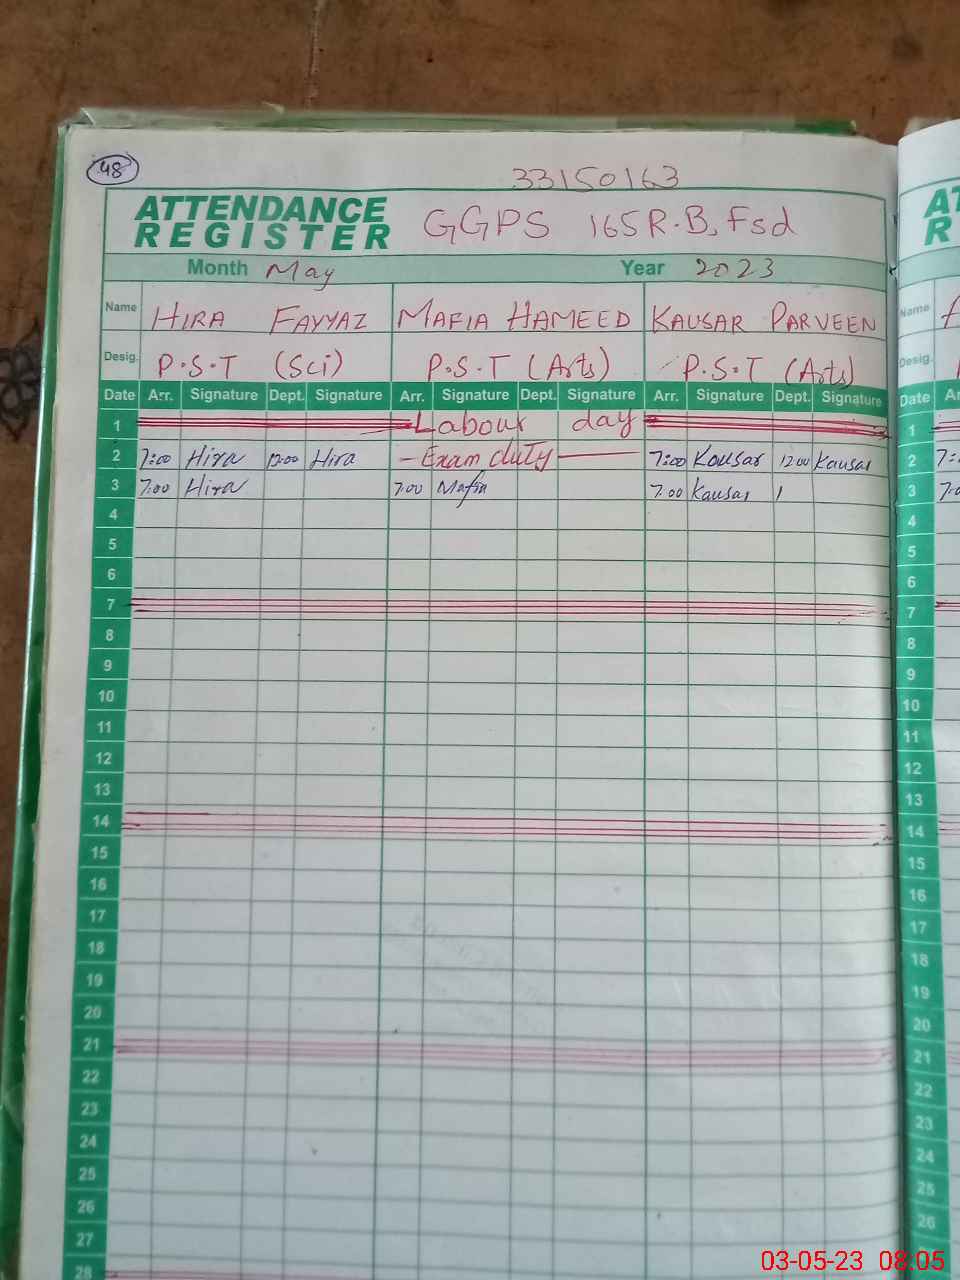 48
33150163
ATTENDANCE REGISTER GGPS 165 R.B, Fsd
Month May Year 2023
Name HIRA FAYYAZ MAFIA HAMEED KAUSAR PARVEEN Name
Desig. P.S.T (Sci) P.S.T (Arts) P.S.T (Arts) Desig.
Date Arr. Signature Dept. Signature Arr. Signature Dept. Signature Arr. Signature Dept. Signature Date
1 Labour day 1
2 7:00 Hira 12:00 Hira Exam duty 7:00 Kousar 12:00 Kausar 2
3 7:00 Hira 7:00 Mafia 7:00 Kausar 3
4 4
5 5
6 6
7 7
8 8
9 9
10 10
11 11
12 12
13 13
14 14
15 15
16 16
17 17
18 18
19 19
20 20
21 21
22 22
23 23
24 24
25 25
26 26
27 27
28
03-05-23 08:05